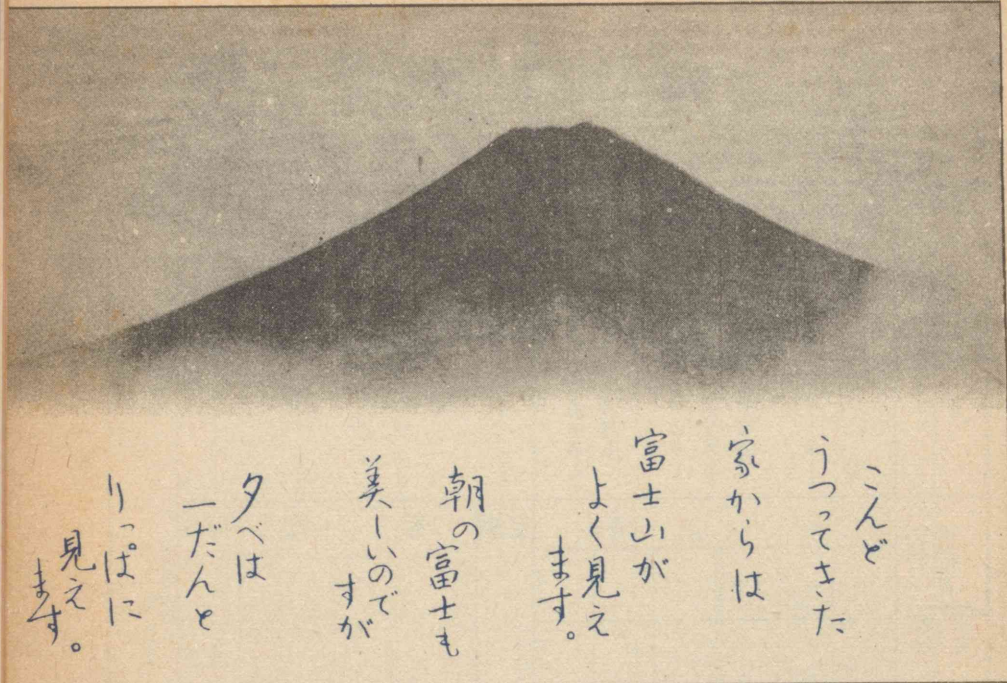 こんど
うつってきた
家からは
富士山が
よく見え
ます。
朝の
富士も
美しいので
すが
夕べは
一だんと
りっぱに
見え
ます。